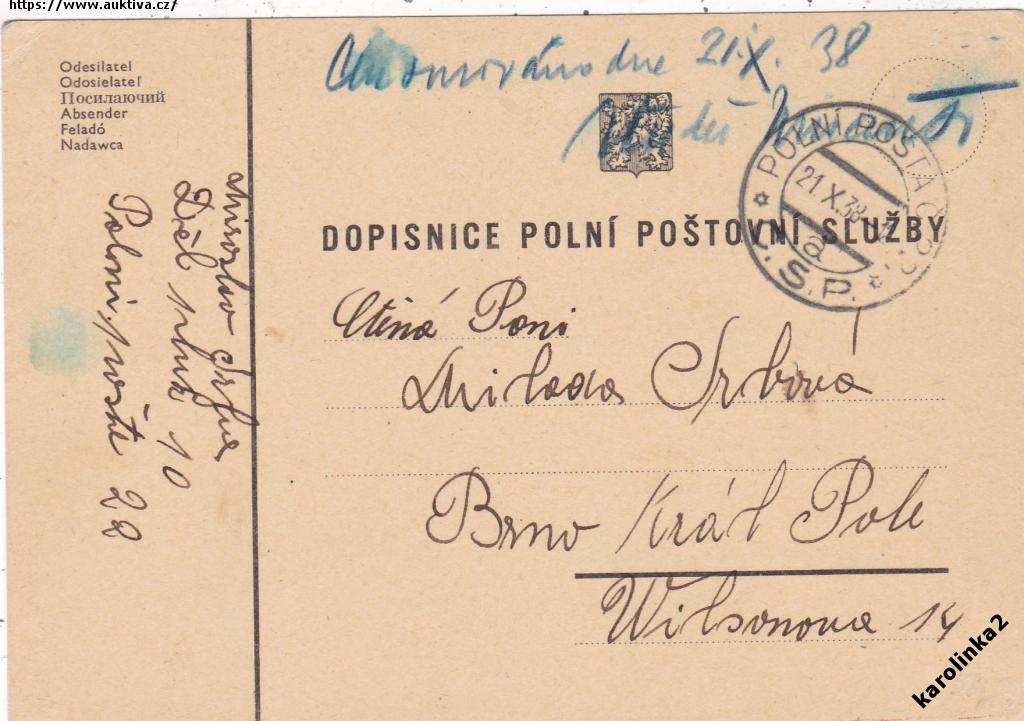 https://www.auktiva.cz/
Odesilatel
Odosielateľ
Посилаючий
Absender
Feladó
Nadawca
Miroslav
Děl. pluk 10
Polní pošta 22
21.X.38
POLNÍ POŠTA
21.X.38
a
Č.S.P.
DOPISNICE POLNÍ POŠTOVNÍ SLUŽBY
Ctěná Paní
Milada Srbová
Brno Král Pole
Wilsonova 14
karolinka2